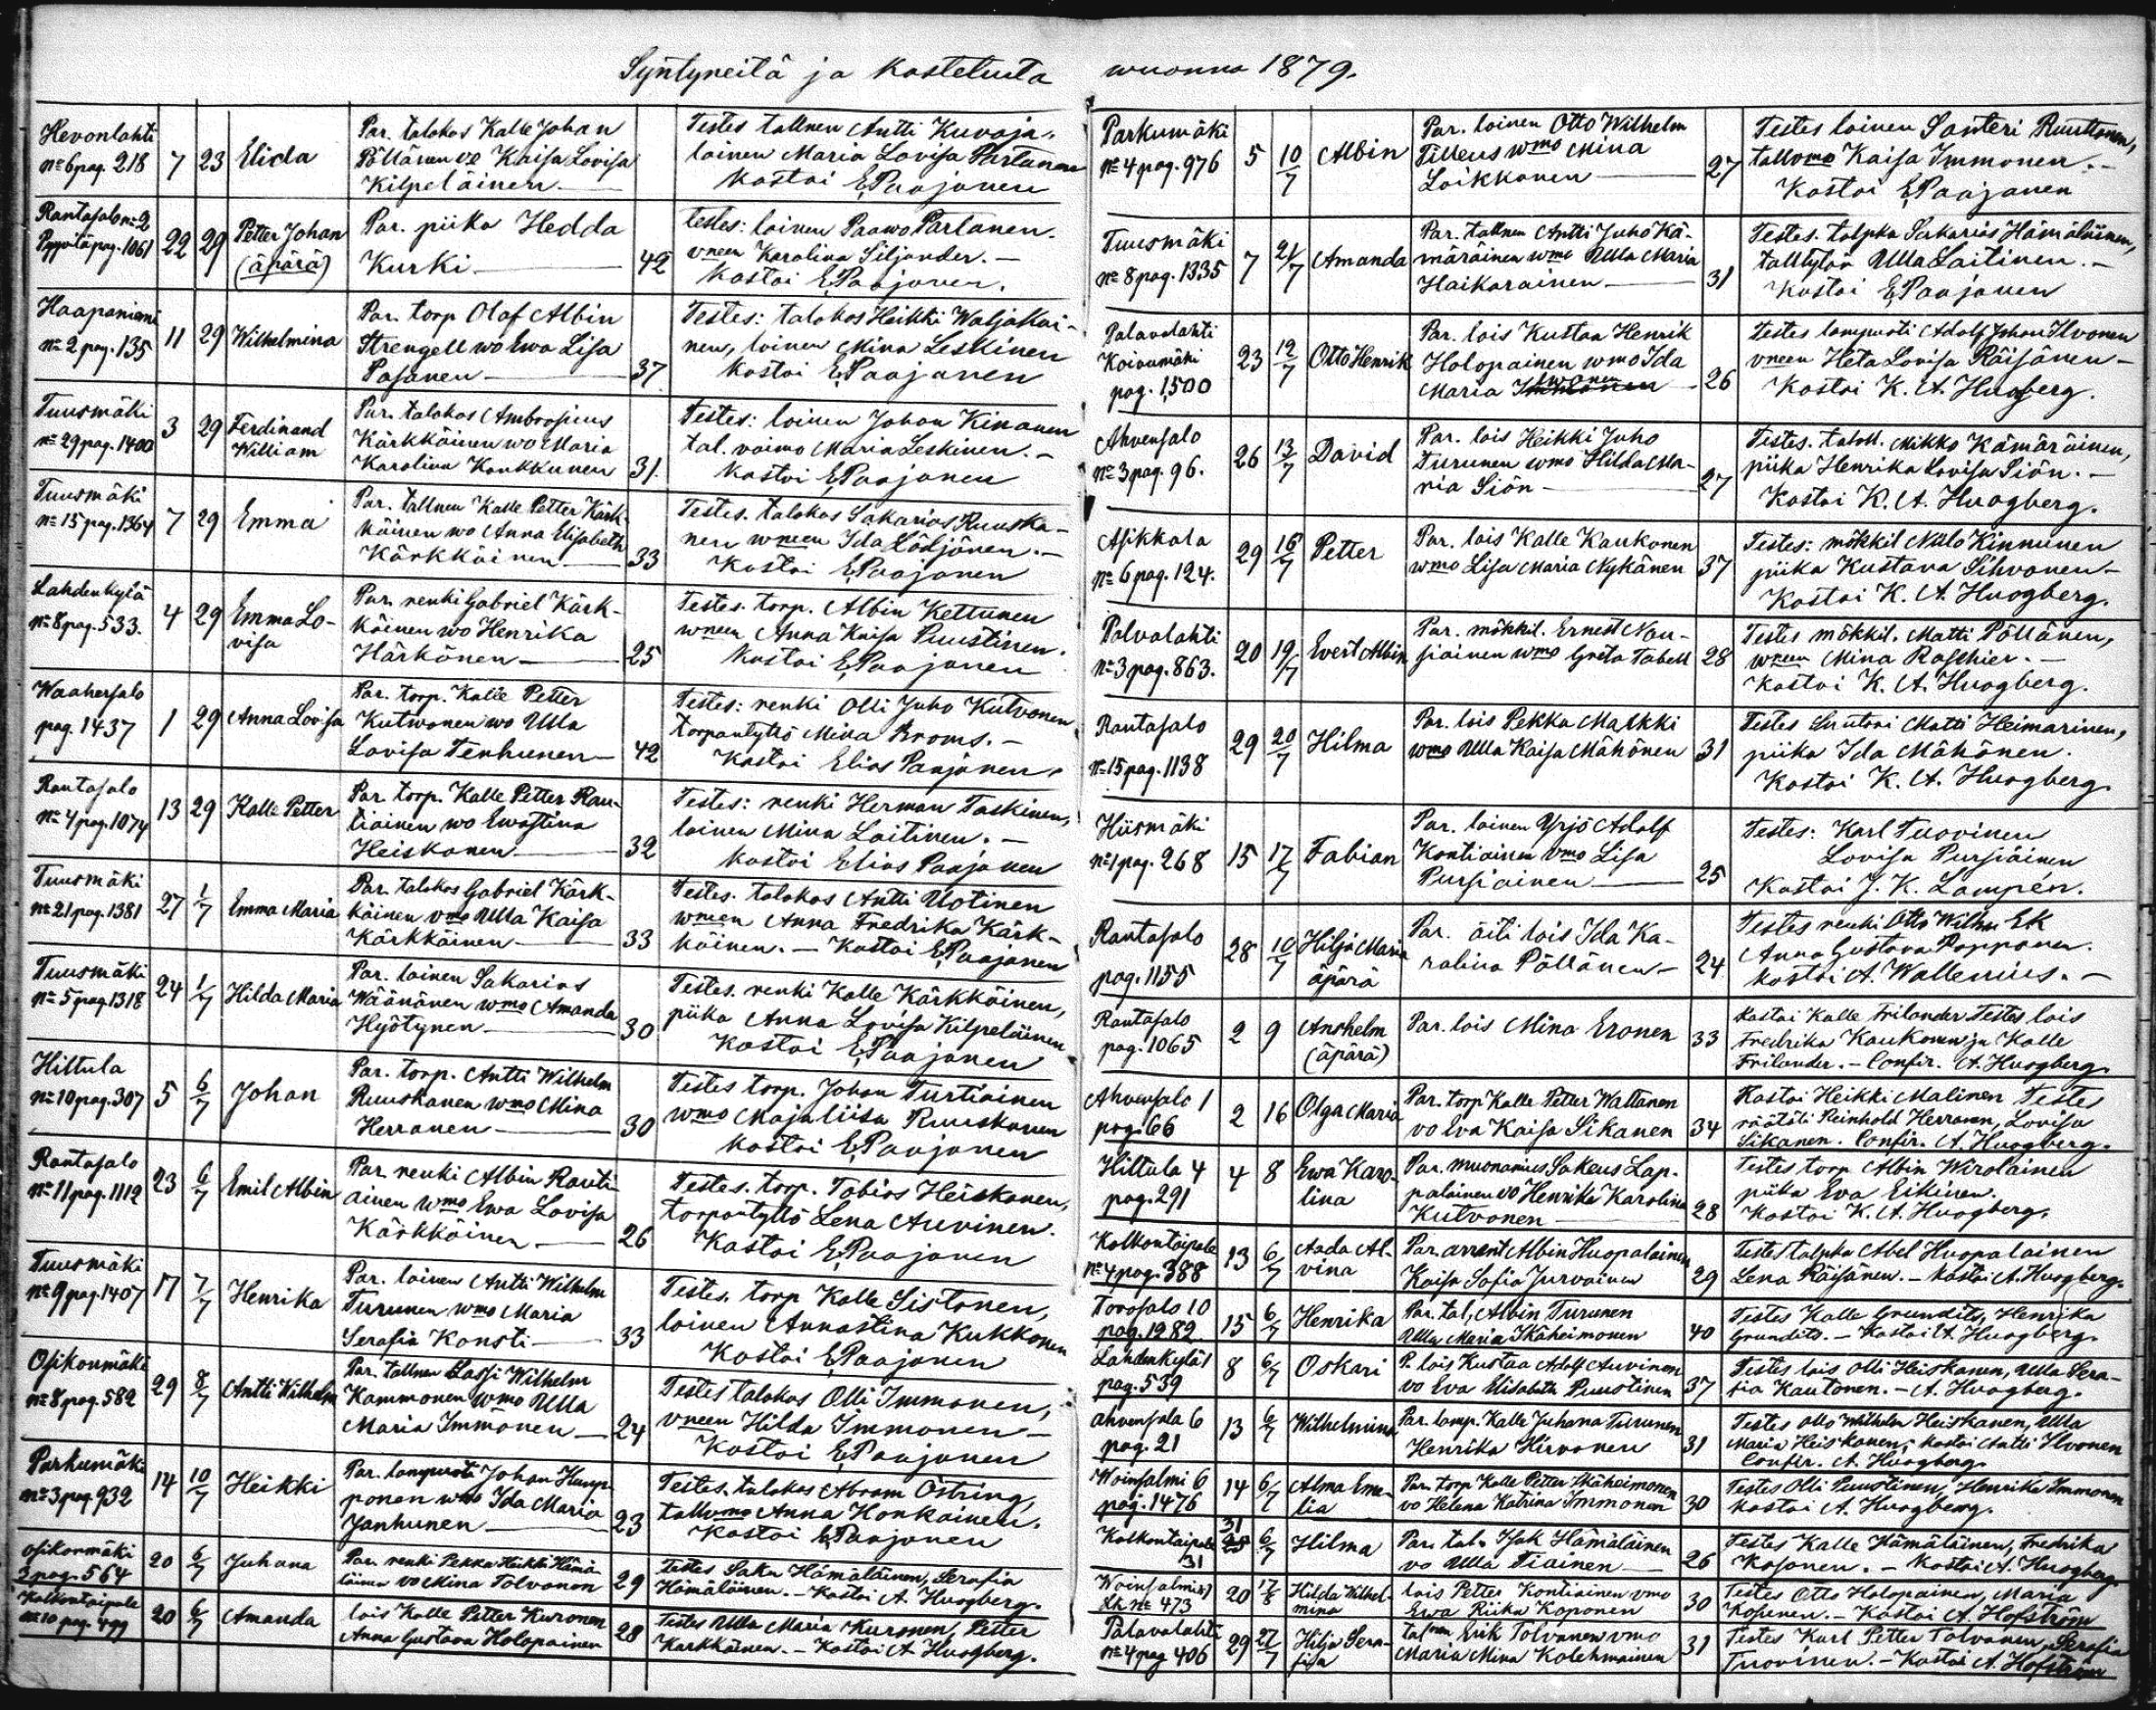 Syntyneitä ja kastetuita wuonna 1879.
Hevonlahti
№ 6 pag. 218 7 23 Elida
Par. talokas Kalle Johan
Pöllänen vo Kaisa Lovisa
Kilpeläinen
Testes tallnen Antti Kuvaja,
loinen Maria Lovisa Partanen
Kastoi E. Paajanen
Rantasalo № 2
pag. 1061 22 29 Petter Johan
(äpärä)
Par. piika Hedda
Kurki 42
testes: loinen Paawo Partanen.
vneen Karolina Siljander. –
Kastoi E. Paajanen.
Haapaniemi
№ 2 pag. 135 11 29 Wilhelmina
Par. torp Olof Albin
Strengell wo Ewa Lisa
Pasanen 37
Testes: talokas Heikki Waljakai-
nen, loinen Mina Leskinen
Kastoi E. Paajanen
Tuusmäki
№ 29 pag. 1400 3 29 Ferdinand
William
Par. talokas Ambrosius
Kärkkäinen wo Maria
Karolina Kaukkunen 31.
Testes: loinen Johan Kinanen
tal. vaimo Maria Leskinen. –
Kastoi E. Paajanen
Tuusmäki
№ 15 pag. 1364 7 29 Emma
Par. tallnen Kalle Petter Kärk-
käinen wo Anna Elisabeth
Kärkkäinen 33
Testes. talokas Sakarias Ruuska-
nen wneen Ida Löljönen. –
Kastoi E. Paajanen
Lahdenkylä
№ 8 pag. 533. 4 29 Emma Lo-
visa
Par. renki Gabriel Kärk-
käinen wo Henrika
Härkönen 25
Testes. torp. Albin Kettunen
wneen Anna Kaisa Puustinen.
Kastoi E. Paajanen
Waahersalo
pag. 1437 1 29 Anna Lovisa
Par. torp. Kalle Petter
Kutwonen wo Ulla
Lovisa Tenhunen 42
Testes: renki Olli Juho Kutvonen
torpantyttö Mina Broms. –
Kastoi Elias Paajanen.
Rantasalo
№ 4 pag. 1074 13 29 Kalle Petter
Par. torp. Kalle Petter Rau-
tiainen wo Ewastina
Heiskanen 32
Testes: renki Herman Taskinen,
loinen Mina Laitinen. –
Kastoi Elias Paajanen
Tuusmäki
№ 21 pag. 1381 27 1/7 Emma Maria
Par. talokas Gabriel Kärk-
käinen vmo Ulla Kaisa
Kärkkäinen 33
Testes. talokas Antti Uotinen
wneen Anna Fredrika Kärk-
käinen. – Kastoi E. Paajanen
Tuusmäki
№ 5 pag. 1318 24 1/7 Hilda Maria
Par. loinen Sakarias
Wäänänen wmo Amanda
Hyötynen 30
Testes. renki Kalle Kärkkäinen,
piika Anna Lovisa Kilpeläinen
Kastoi E. Paajanen
Hiltula
№ 10 pag. 307 5 6/7 Johan
Par. torp. Antti Wilhelm
Ruuskanen wmo Mina
Herranen 30
Testes torp. Johan Turtiainen
wmo Majaliisa Ruuskanen
Kastoi E. Paajanen
Rantasalo
№ 11 pag. 1112 23 6/7 Emil Albin
Par. renki Albin Rauti-
ainen wmo Ewa Lovisa
Kärkkäinen 26
Testes. torp. Tobias Heiskanen,
torpantyttö Lena Auvinen.
Kastoi E. Paajanen
Tuusmäki
№ 9 pag. 1407 17 7/7 Henrika
Par. loinen Antti Wilhelm
Turunen wmo Maria
Serafia Konsti 33
Testes. torp Kalle Sistonen,
loinen Annastina Kukkonen
Kastoi E. Paajanen
Osikonmäki
№ 8 pag. 582 29 8/7 Antti Wilhelm
Par. tallnen Lassi Wilhelm
Kammonen wmo Ulla
Maria Immonen 24
Testes talokas Olli Immonen,
vneen Hilda Immonen –
Kastoi E. Paajanen
Parkumäki
№ 3 pag. 932 14 10/7 Heikki
Par. lampuoti Johan Hump-
ponen wmo Ida Maria
Janhunen 23
Testes. talokas Abram Östring,
tallvmo Anna Honkainen.
Kastoi E. Paajanen
Osikonmäki
3 pag. 564 20 6/7 Juhana
Par. renki Pekka Heikki Hämä-
läinen vo Mina Tolvanen 29
Testes Saku Hämäläinen, Serafia
Hämäläinen. – Kastoi A. Huogberg.
Kolkontaipale
№ 10 pag. 499 20 6/7 Amanda
lois Kalle Petter Kuronen
Anna Gustava Holopainen 28
Testes Ulla Maria Kuronen, Petter
Karkkäinen. – Kastoi A Huogberg.
Parkumäki
№ 4 pag. 976 5 10/7 Albin
Par. loinen Otto Wilhelm
Tilleus wmo Mina
Loikkanen 27
Testes loinen Santeri Ruuttonen,
tallvmo Kaisa Immonen. –
Kastoi E. Paajanen
Tuusmäki
№ 8 pag. 1335 7 21/7 Amanda
Par. tallnen Antti Juho Kä-
märäinen wmo Ulla Maria
Haikarainen 31
Testes. talpka Sakarias Hämäläinen,
talltytär Ulla Laitinen. –
Kastoi E. Paajanen
Palavalahti
Koivumäki
pag. 1500 23 12/7 Otto Henrik
Par. lois Kustaa Henrik
Holopainen wmo Ida
Maria 26
Testes lampuoti Adolf Johan Ilvonen
vneen Heta Lovisa Räisänen –
Kastoi K. A. Huogberg.
Ahvensalo
№ 3 pag. 96. 26 13/7 David
Par. lois Heikki Juho
Turunen wmo Hilda Ma-
ria Siön 27
Testes. taloll. Mikko Kämäräinen,
piika Henrika Lovisa Siön. –
Kastoi K. A. Huogberg.
Asikkala
№ 6 pag. 124. 29 16/7 Petter
Par. lois Kalle Kaukonen
wmo Lisa Maria Nykänen 37
Testes: mökkil Niilo Kinnunen
piika Kustava Sihvonen –
Kastoi K. A. Huogberg.
Palvalahti
№ 3 pag. 863. 20 19/7 Evert Albin
Par. mökkil. Ernest Nou-
siainen wmo Greta Tabell 28
Testes mökkil. Matti Pöllänen,
wneen Mina Raschier. –
Kastoi K. A. Huogberg.
Rantasalo
№ 15 pag. 1138 29 20/7 Hilma
Par. lois Pekka Malkki
wmo Ulla Kaisa Mähönen 31
Testes Suutari Matti Heimarinen,
piika Ida Mähönen.
Kastoi K. A. Huogberg.
Hiismäki
№ 1 pag. 268 15 17/7 Fabian
Par. loinen Yrjö Adolf
Kontiainen vmo Lisa
Pursiainen 25
Testes: Karl Tuovinen
Lovisa Pursiäinen
Kastoi J. K. Lampén.
Rantasalo
pag. 1155 28 10/7 Hilja Maria
äpärä
Par. äiti lois Ida Ka-
rolina Pöllänen 24
Testes renki Otto Wilhm Ek
Anna Gustava Ropponen.
Kastoi A. Wallenius. –
Rantasalo
pag. 1065 2 9 Anshelm
(äpärä)
Par. lois Mina Eronen 33
Kastoi Kalle Frilander Testes lois
Fredrika Kaukonen ja Kalle
Frilander. – Confir. A. Huogberg.
Ahvensalo 1
pag. 66 2 16 Olga Maria
Par. torp Kalle Petter Wattanen
vo Eva Kaisa Sikanen 34
Kastoi Heikki Malinen Testes
räätäli Reinhold Herranen, Lovisa
Sikanen. Confir. A. Huogberg.
Hiltula 4
pag. 291 4 8 Ewa Karo-
lina
Par. muonamies Sakeus Lap-
palainen vo Henrika Karolina
Kutvonen 28
Testes torp Albin Wirolainen
piika Eva Eikinen.
Kastoi K. A. Huogberg.
Kolkontaipale
№ 4 pag. 388 13 6/7 Aada Al-
vina
Par. arrent Albin Huopalainen
Kaisa Sofia Jurvainen 29
Testes talpka Abel Huopalainen
Lena Räisänen. – Kastoi A. Huogberg.
Torosalo 10
pag. 1282 15 6/7 Henrika
Par. tal, Albin Turunen
Ulla Maria Ikäheimonen 40
Testes Kalle Grundits, Henrika
Grundits. – Kastoi A. Huogberg.
Lahdenkylä 1
pag. 539 8 6/7 Oskari
P. lois Kustaa Adolf Auvinen
vo Eva Elisabeth Puustinen 37
Testes lois Olli Heiskanen, Ulla Sera-
fia Kautonen. – A. Huogberg.
Ahvensalo 6
pag. 21 13 6/7 Wilhelmina
Par. lamp. Kalle Juhana Turunen
Henrika Hirvonen 31
Testes Otto Wilhelm Heiskanen, Ulla
Maria Heiskanen; Kastoi Antti Ilvonen
Confir. A. Huogberg.
Woinsalmi 6
pag. 1476 14 6/7 Alma Eme-
lia
Par. torp Kalle Petter Ikäheimonen
vo Helena Katrina Immonen 30
Testes Olli Puustinen, Henrika Immonen
Kastoi A. Huogberg.
Kolkontaipale
31 31 6/7 Hilma
Par. tal. Isak Hämäläinen
vo Ulla Tiainen 26
Testes Kalle Hämäläinen, Fredrika
Kosonen. – Kastoi A. Huogberg
Woinsalmi
№ 473 20 17/8 Hilda Wilhel-
mina
lois Petter Kontiainen vmo
Ewa Riika Koponen 30
Testes Otto Holopainen, Maria
Koponen. – Kastoi A. Hofström
Palavalahti
№ 4 pag 406 29 27/7 Hilja Sera-
fiia
talnen Erik Tolvanen vmo
Maria Mina Kolehmainen 31
Testes Karl Petter Tolvanen, Serafia
Tuovinen. – Kastoi A. Hofström